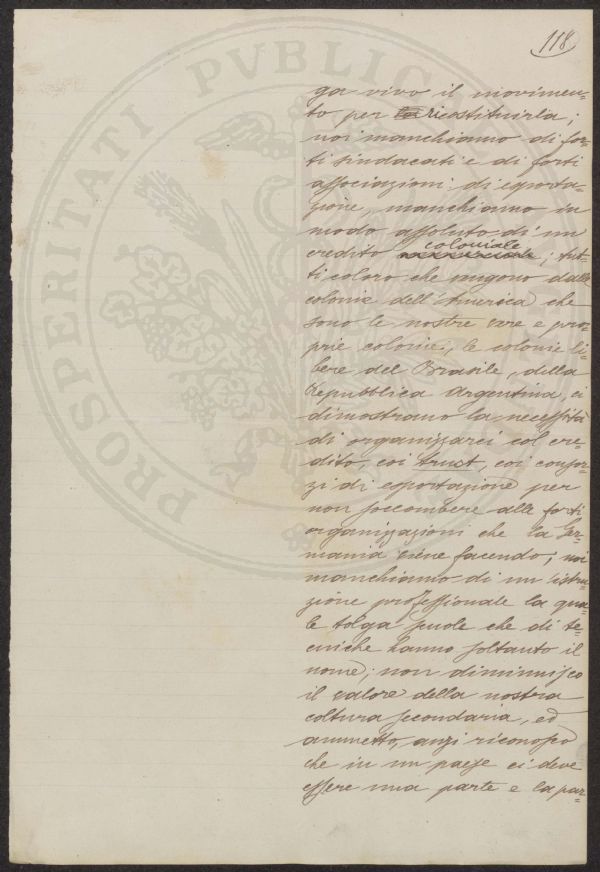 118
ga vivo il movimen-
to per ricostituirla;
noi manchiamo di for-
ti sindacati e di forti
associazioni di esporta-
zione, manchiamo in
modo assoluto di un
credito coloniale; tut-
ti coloro che vengono dalle
colonie dell'America che
sono le nostre vere e pro-
prie colonie, le colonie li-
bere del Brasile, della
Repubblica Argentina, ci
dimostrano la necessità
di organizzarci col cre-
dito, coi trust, coi consor-
zi di esportazione per
non soccombere alle forti
organizzazioni che la Ger-
mania viene facendo; noi
manchiamo di un'istru-
zione professionale la qua-
le tolga scuole che di te-
cniche hanno soltanto il
nome; non diminuisco
il valore della nostra
coltura secondaria, ed
ammetto, anzi riconosco
che in un paese ci deve
essere una parte e la par-
PROSPERITATI PVBLICAE